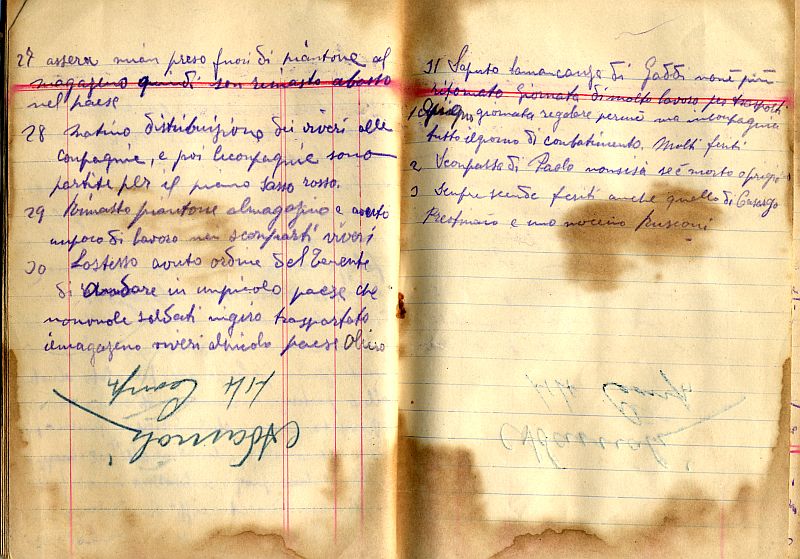 27 assera mian preso fuori di piantone al
magazino quindi son rimasto abasso
nel paese
28 Matino distribuizione dei viveri alle
conpagnie, e poi leconpagnie sono
partite per il piano Sasso rosso.
29 Rimasto piantone almagazino e avuto
unpoco di lavoro nei sconparti viveri
30 Lostesso avuto ordine del Tenente
di andare in unpicolo paese che
nonvuole soldati ingiro trasportato
ilmagazeno viveri alpicolo paese Oliero
31 Saputo lamancanza di Gaddi nonè più
ritornato Giornata di molto lavoro per trasporti
1 Giugno giornata regolare perme ma inconpagnia
tutto ilgiorno di conbatimento. Molti feriti
2 Sconparsa di Paolo nonsisà se è morto o prigio
3 Senpre scende feriti anche quello di Casargo
e uno Rusconi
44 Comp